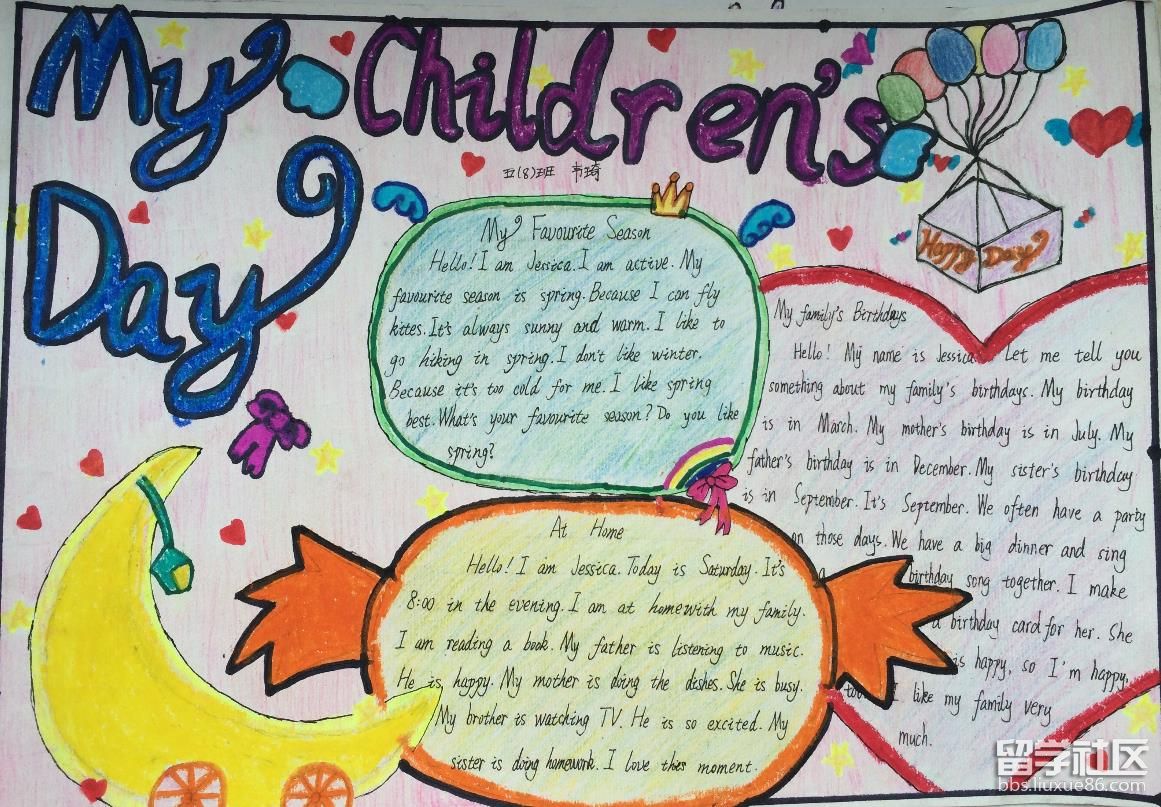 My Children's
Day
五(8)班 韦琦
My Favourite Season
Hello! I am Jessica. I am active. My
favourite season is spring. Because I can fly
kites. It's always sunny and warm. I like to
go hiking in spring. I don't like winter.
Because it's too cold for me. I like spring
best. What's your favourite season? Do you like
spring?
Happy Day
My family's Birthdays
Hello! My name is Jessica. Let me tell you
something about my family's birthdays. My birthday
is in March. My mother's birthday is in July. My
father's birthday is in December. My sister's birthday
is in September. It's September. We often have a party
on those days. We have a big dinner and sing
a birthday song together. I make
a birthday card for her. She
is happy, so I'm happy,
too. I like my family very
much.
At Home
Hello! I am Jessica. Today is Saturday. It's
8:00 in the evening. I am at home with my family.
I am reading a book. My father is listening to music.
He is happy. My mother is doing the dishes. She is busy.
My brother is watching TV. He is so excited. My
sister is doing homework. I love this moment.
留学社区
bbs.liuxue86.com